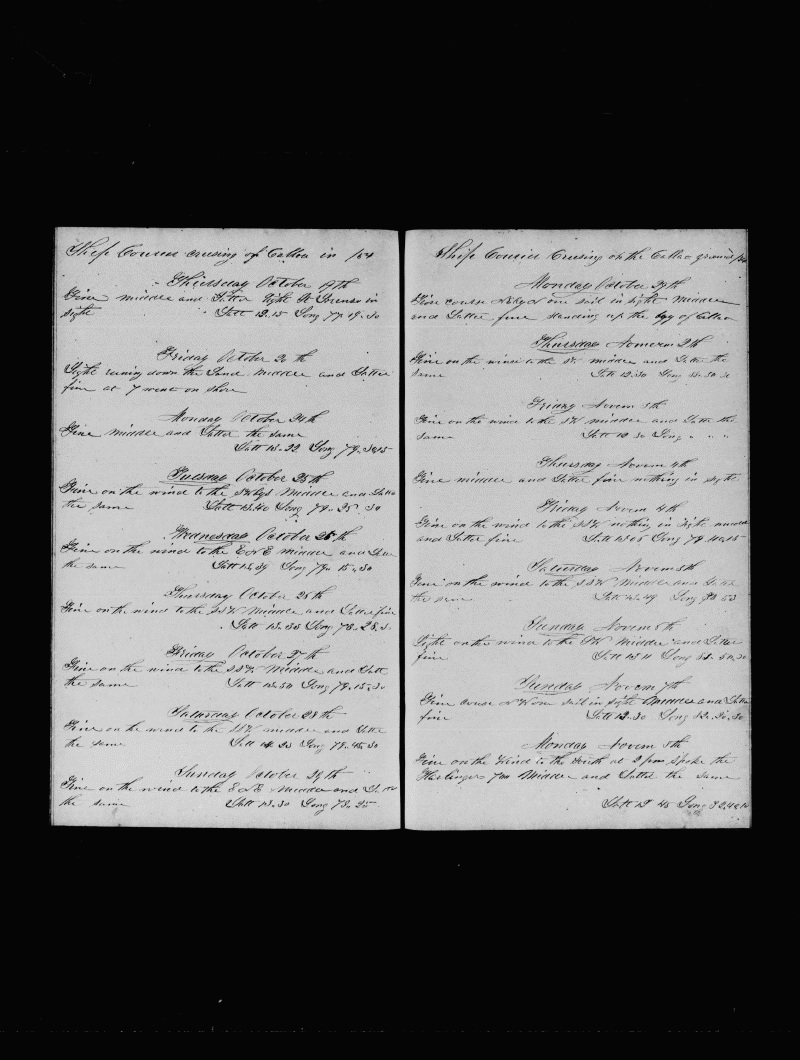 Ship Cousens crusing of Callao in /54
Thursday October 19th
Fine middle and Latter light St Lorenso in
sight Latt 12.15 Long 77.19.30
Friday October 20th
Light runing down the Land Middle and Latter
fine at 7 went on shore
Monday October 24th
Fine Middle and Latter the same
Latt 13.22 Long 79.
Tuesday October 25th
Fine on the wind to the Middle and Latter
the same Latt 13.40 Long 79.25.30
Wednesday October 26th
Fine on the wind to the middle and
the same Latt 13.39 Long 79.15.30
Thursday October 26th
Fine on the wind to the SSW Middle and Latter fine
Latt 13.35 Long 78.28.
Friday October 27th
Fine on the wind to the SSW Middle and Latt
the same Latt 13.54 Long 79.15.30
Saturday October 28th
Fine on the wind to the SSW middle and Latte
the same Latt 23 Long 78.45.30
Sunday October 29th
Fine on the wind to the Middle and
the same Latt 13.30 Long 78.25
Ship Cousens Crusing on the Callao ground /54
Monday October 29th
Fine course one sail in sight middle
and Latter fine standing up the bay of Callao
Thursday 2th
Fine on the wind to the middle and Latter the
same Latt 12.30 Long
Friday Novem
Fine on the wind to the SW middle and Latter the
same Latt 12.30 Long " " "
Thursday Novem 4th
Fine middle and Latter fine nothing in sight
Friday Novem 4th
Fine on the wind to the SSW nothing in sight
and Latter fine Latt 13.05 Long 79.
Saturday Novem 5th
Fine on the wind to the SSW Middle and
the same Latt 13.49 Long 80.53
Sunday Novem
Light on the wind to the SW Middle and Latter
fine Latt 13.11 Long
Novem 7th
Fine course one sail in sight Middle and Latter
fine Latt 12.30 Long 82.20.30
Monday Novem 8th
Fine on the Wind to the South at 2 pm spoke the
Harbinger Middle and Latter the same
Latt 12 45 Long